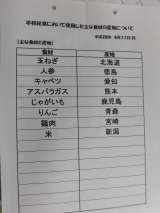 学校給食において使用した主な食材の産地について
平成28年 4月17日 月
【主な食材と産地】
食材 産地
玉ねぎ 北海道
人参 徳島
キャベツ 愛知
アスパラガス 熊本
じゃがいも 鹿児島
りんご 青森
鶏肉 宮崎
米 新潟